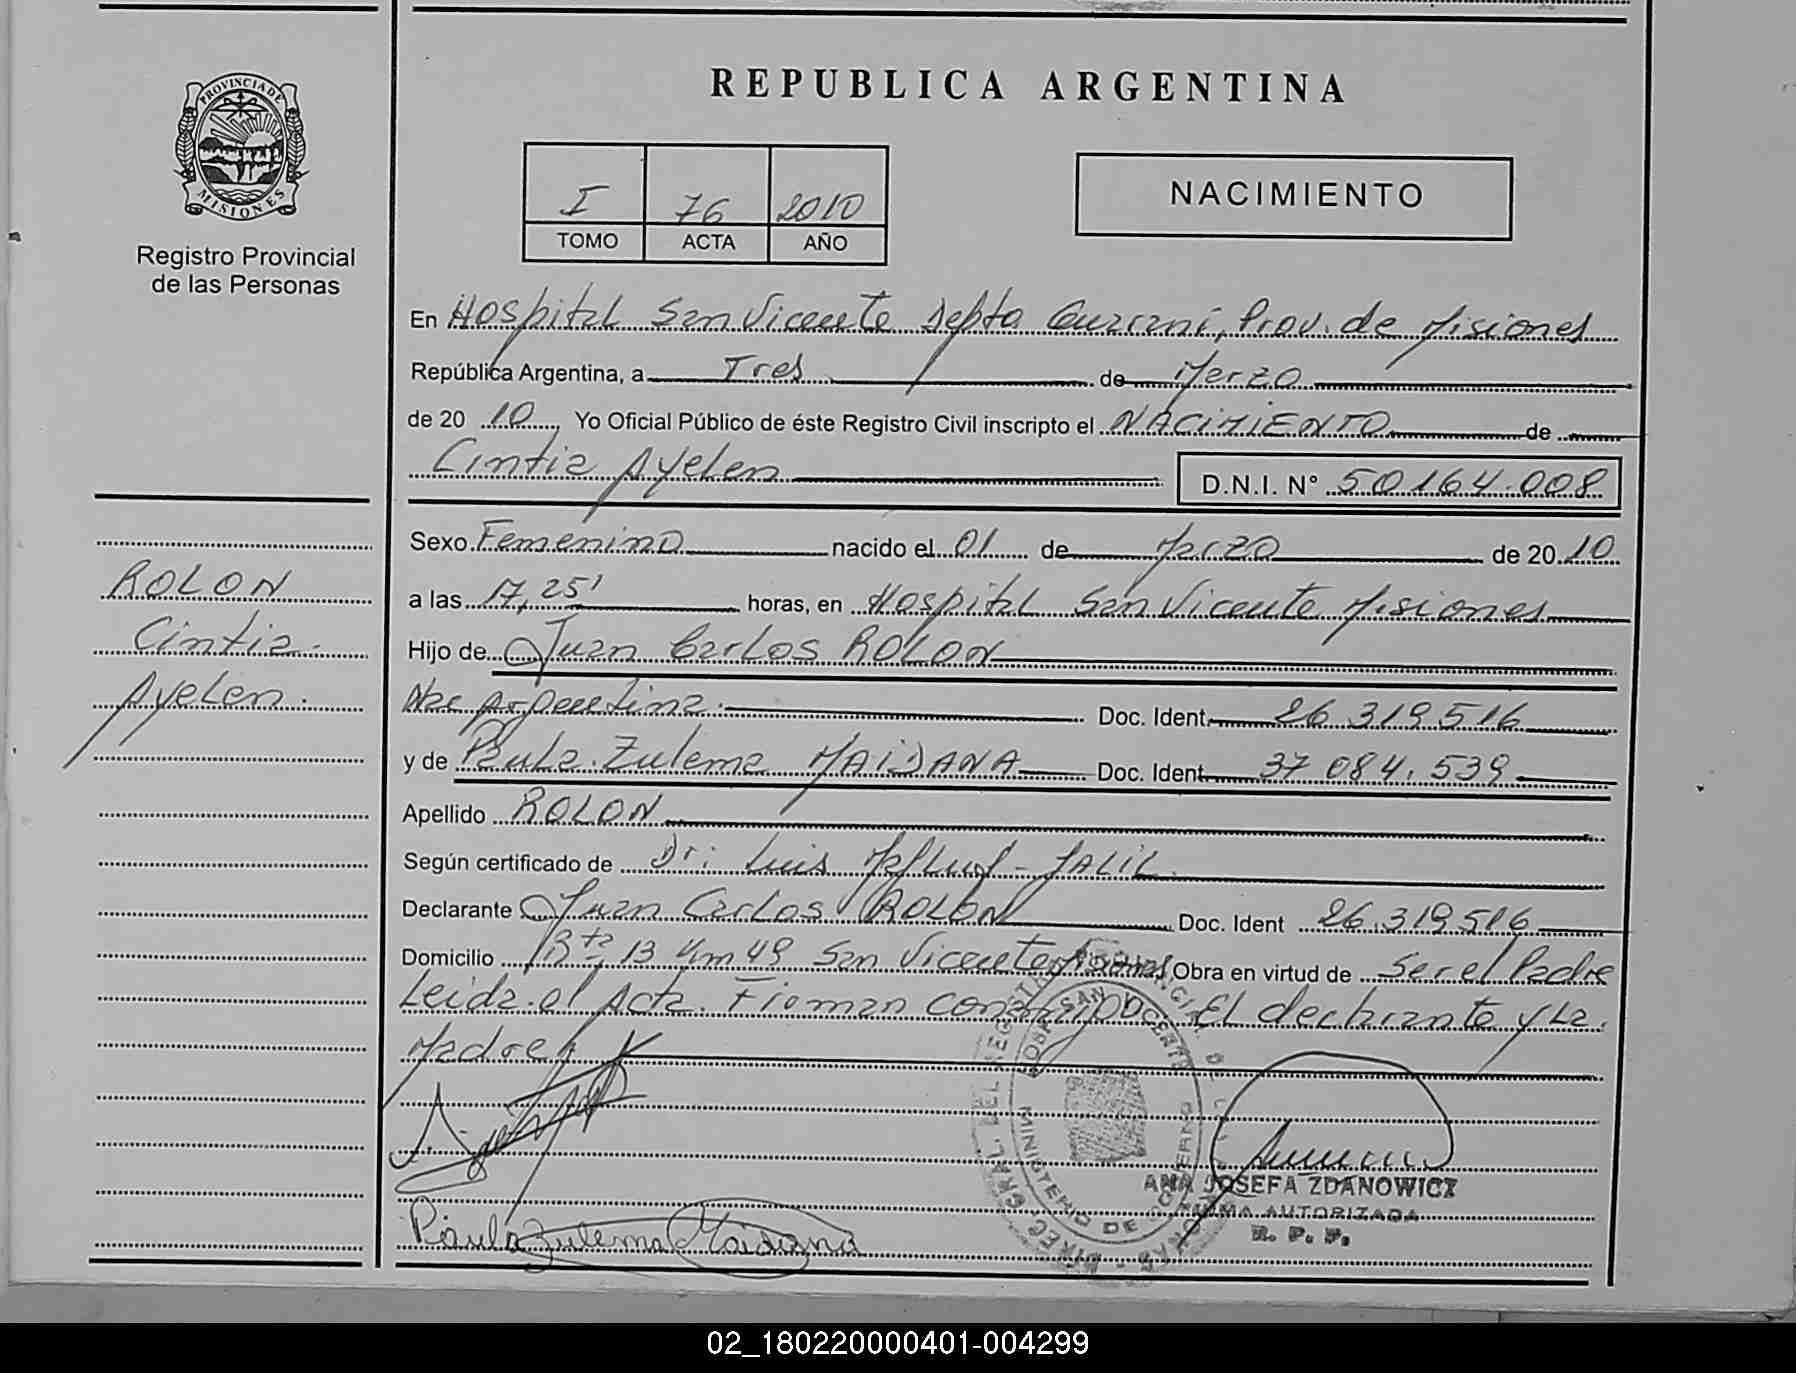 REPUBLICA ARGENTINA
PROVINCIA DE
MISIONES
Registro Provincial
de las Personas
I 76 2010
TOMO ACTA AÑO
NACIMIENTO
En Hospital San Vicente Depto Guaraní, Prov. de Misiones
República Argentina, a Tres de Marzo
de 20 10, Yo Oficial Público de éste Registro Civil inscripto el NACIMIENTO de
Cintia Ayelen D.N.I. N° 50164.008
Sexo Femenino nacido el 01 de Marzo de 20 10
a las 17,25' horas, en Hospital San Vicente Misiones
Hijo de Juan Carlos ROLON
Nac Argentina. Doc. Ident. 26 319 516
y de Paula Zulema MAIDANA Doc. Ident. 37 084.539
Apellido ROLON
Según certificado de Dr: Luis - JALIL
Declarante Juan Carlos ROLON Doc. Ident 26.319516
Domicilio Rta 13 Km 49 San Vicente Misiones Obra en virtud de Ser el Padre
Leida el Acta. Firman El declarante y La
Madre
ROLON
Cintia.
Ayelen.
Paula Zulema Maidana
MINISTERIO DE GOBIERNO
ANA JOSEFA ZDANOWICZ
FIRMA AUTORIZADA
R. P. P.
02_180220000401-004299